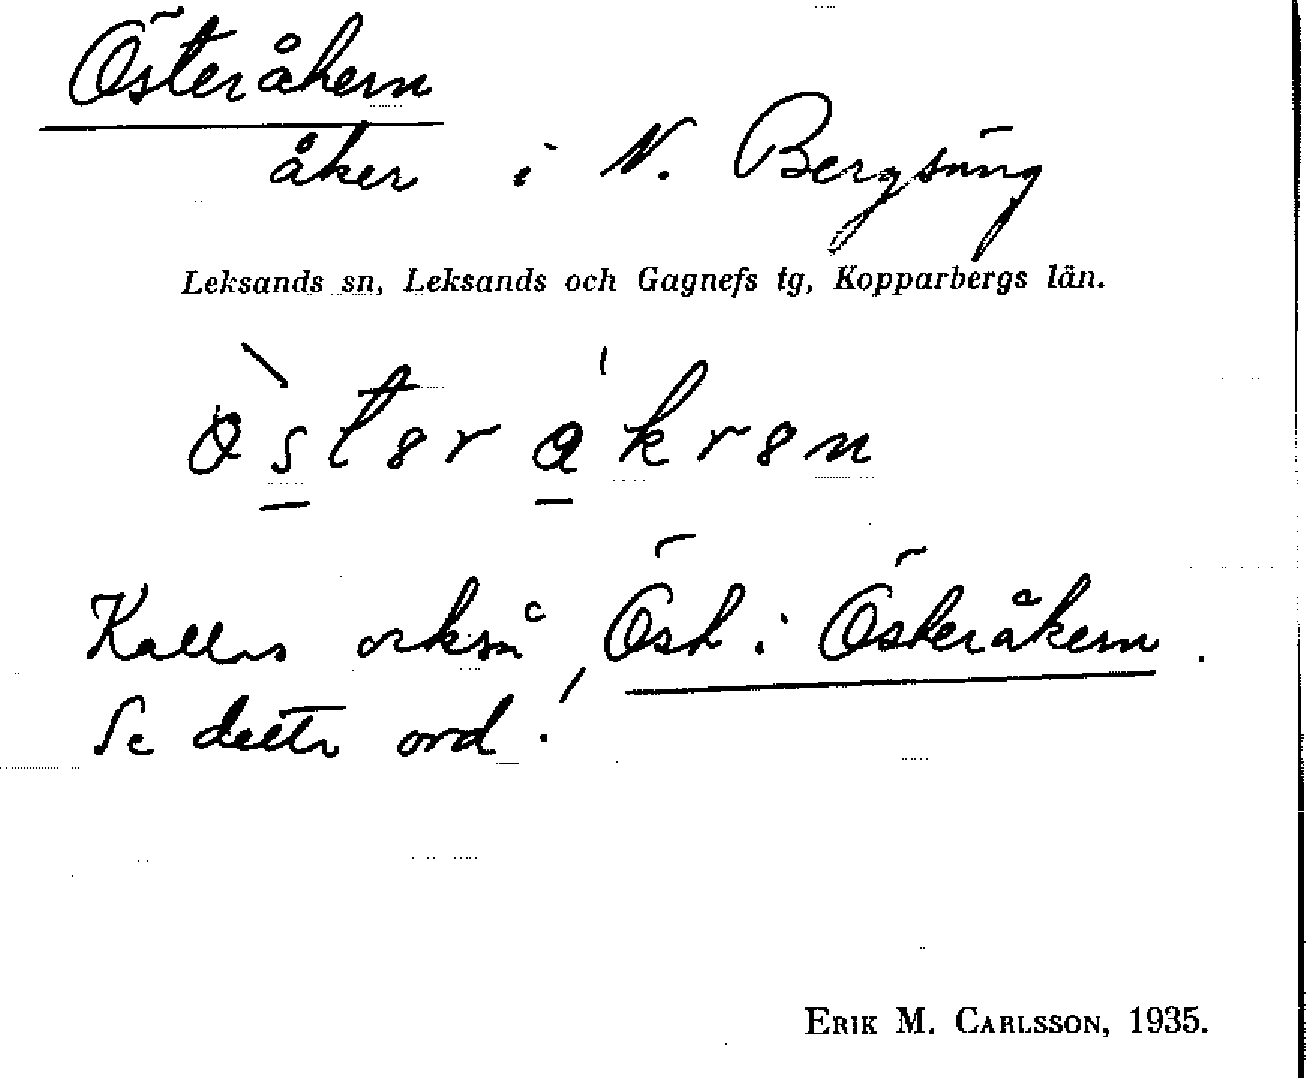 Österåkern
åker i N. Bergsäng
Leksands sn, Leksands och Gagnefs tg, Kopparbergs län.
Kallas också Öst i Österåkern.
Se detta ord!
ERIK M. CARLSSON, 1935.